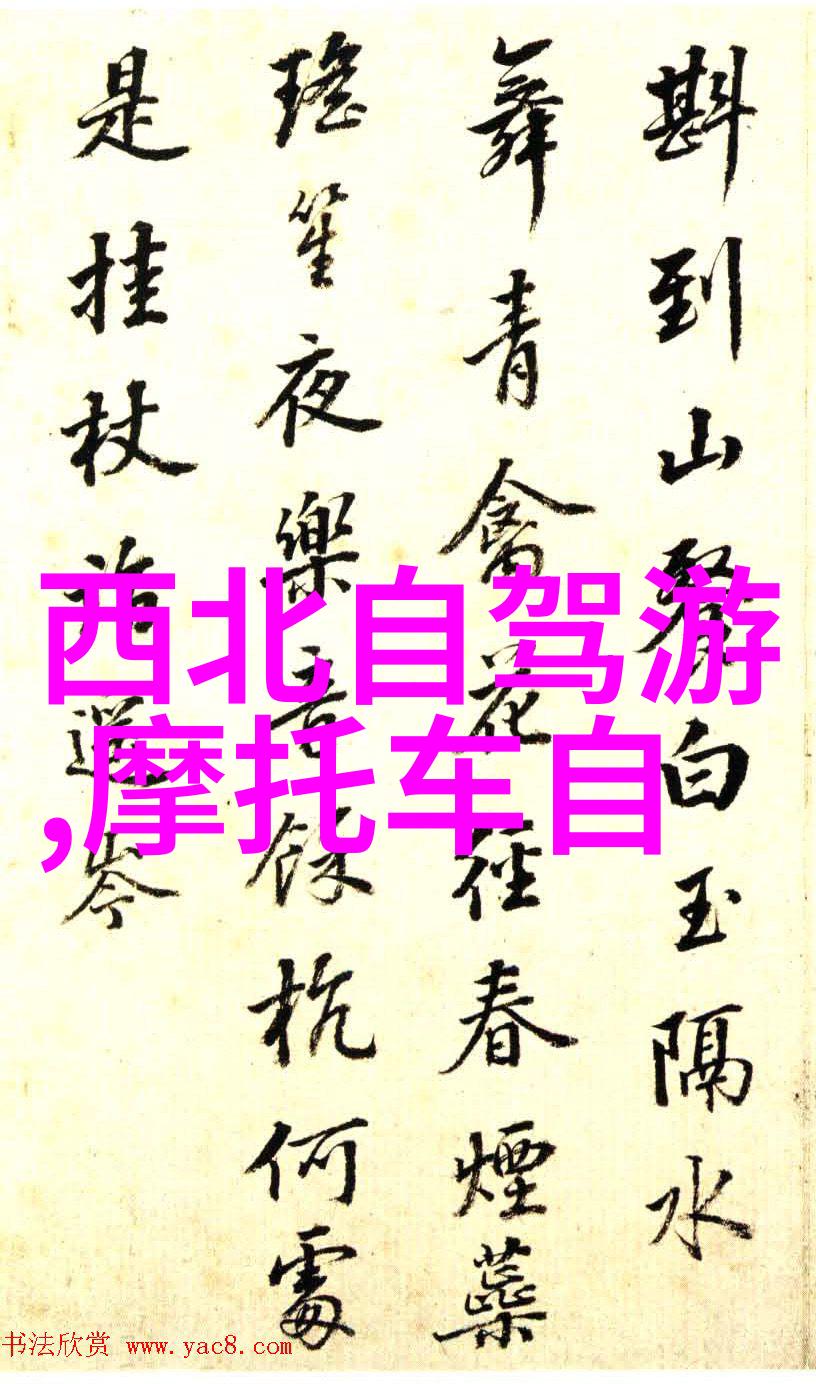 斟到山白玉隔水
舞青禽花徑春煙蘂
瑤笙夜樂餘杭何處
是挂杖遥岑
西北自驾游
,摩托车自
书法欣赏 www.yac8.com